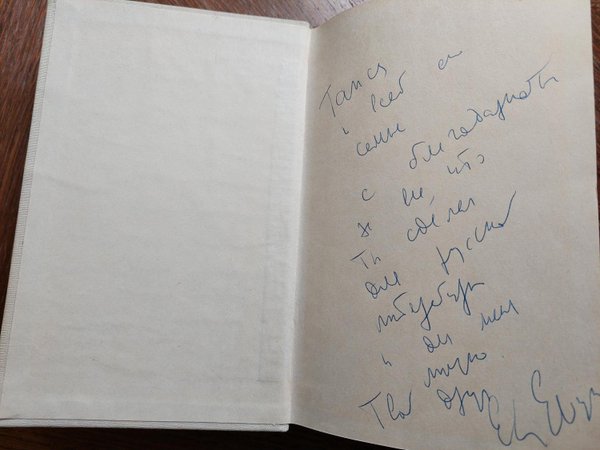 Танся
и всей ея
семье
с благодарностью
за всё, что
Ты сделал
для русской
литературы
и для меня
лично.
Твой друг